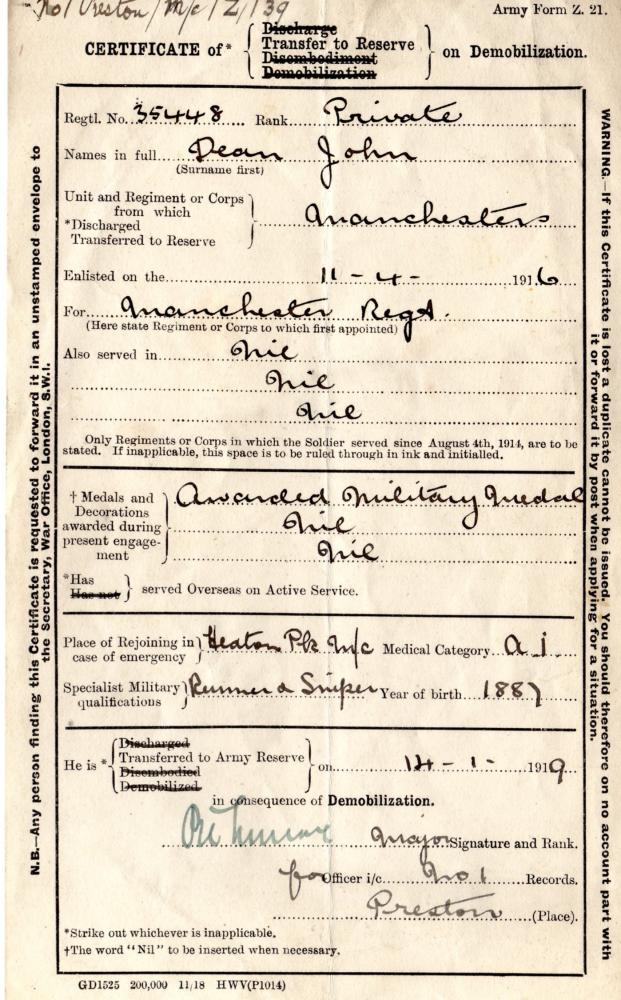 No 1 Preston / M/c / Z / 139
Army Form Z. 21.
CERTIFICATE of* { Discharge
Transfer to Reserve
Disembodiment
Demobilization } on Demobilization.
Regtl. No. 35448 Rank Private
Names in full Dean John
(Surname first)
Unit and Regiment or Corps
from which
*Discharged
Transferred to Reserve } Manchesters
Enlisted on the 11 - 4 - 1916
For Manchester Regt.
(Here state Regiment or Corps to which first appointed)
Also served in Nil
Nil
Nil
Only Regiments or Corps in which the Soldier served since August 4th, 1914, are to be
stated. If inapplicable, this space is to be ruled through in ink and initialled.
† Medals and
Decorations
awarded during
present engage-
ment } Awarded Military Medal
Nil
Nil
*Has
Has not } served Overseas on Active Service.
Place of Rejoining in
case of emergency } Heaton Pk M/c Medical Category A i
Specialist Military
qualifications } Runner & Sniper Year of birth 1887
He is * { Discharged
Transferred to Army Reserve
Disembodied
Demobilized } on 14 - 1 - 1919
in consequence of Demobilization.
Major Signature and Rank.
for Officer i/c No 1 Records.
Preston (Place).
*Strike out whichever is inapplicable.
†The word "Nil" to be inserted when necessary.
GD1525 200,000 11/18 HWV(P1014)
N.B.—Any person finding this Certificate is requested to forward it in an unstamped envelope to
the Secretary, War Office, London, S.W.1.
WARNING.—If this Certificate is lost a duplicate cannot be issued. You should therefore on no account part with
it or forward it by post when applying for a situation.